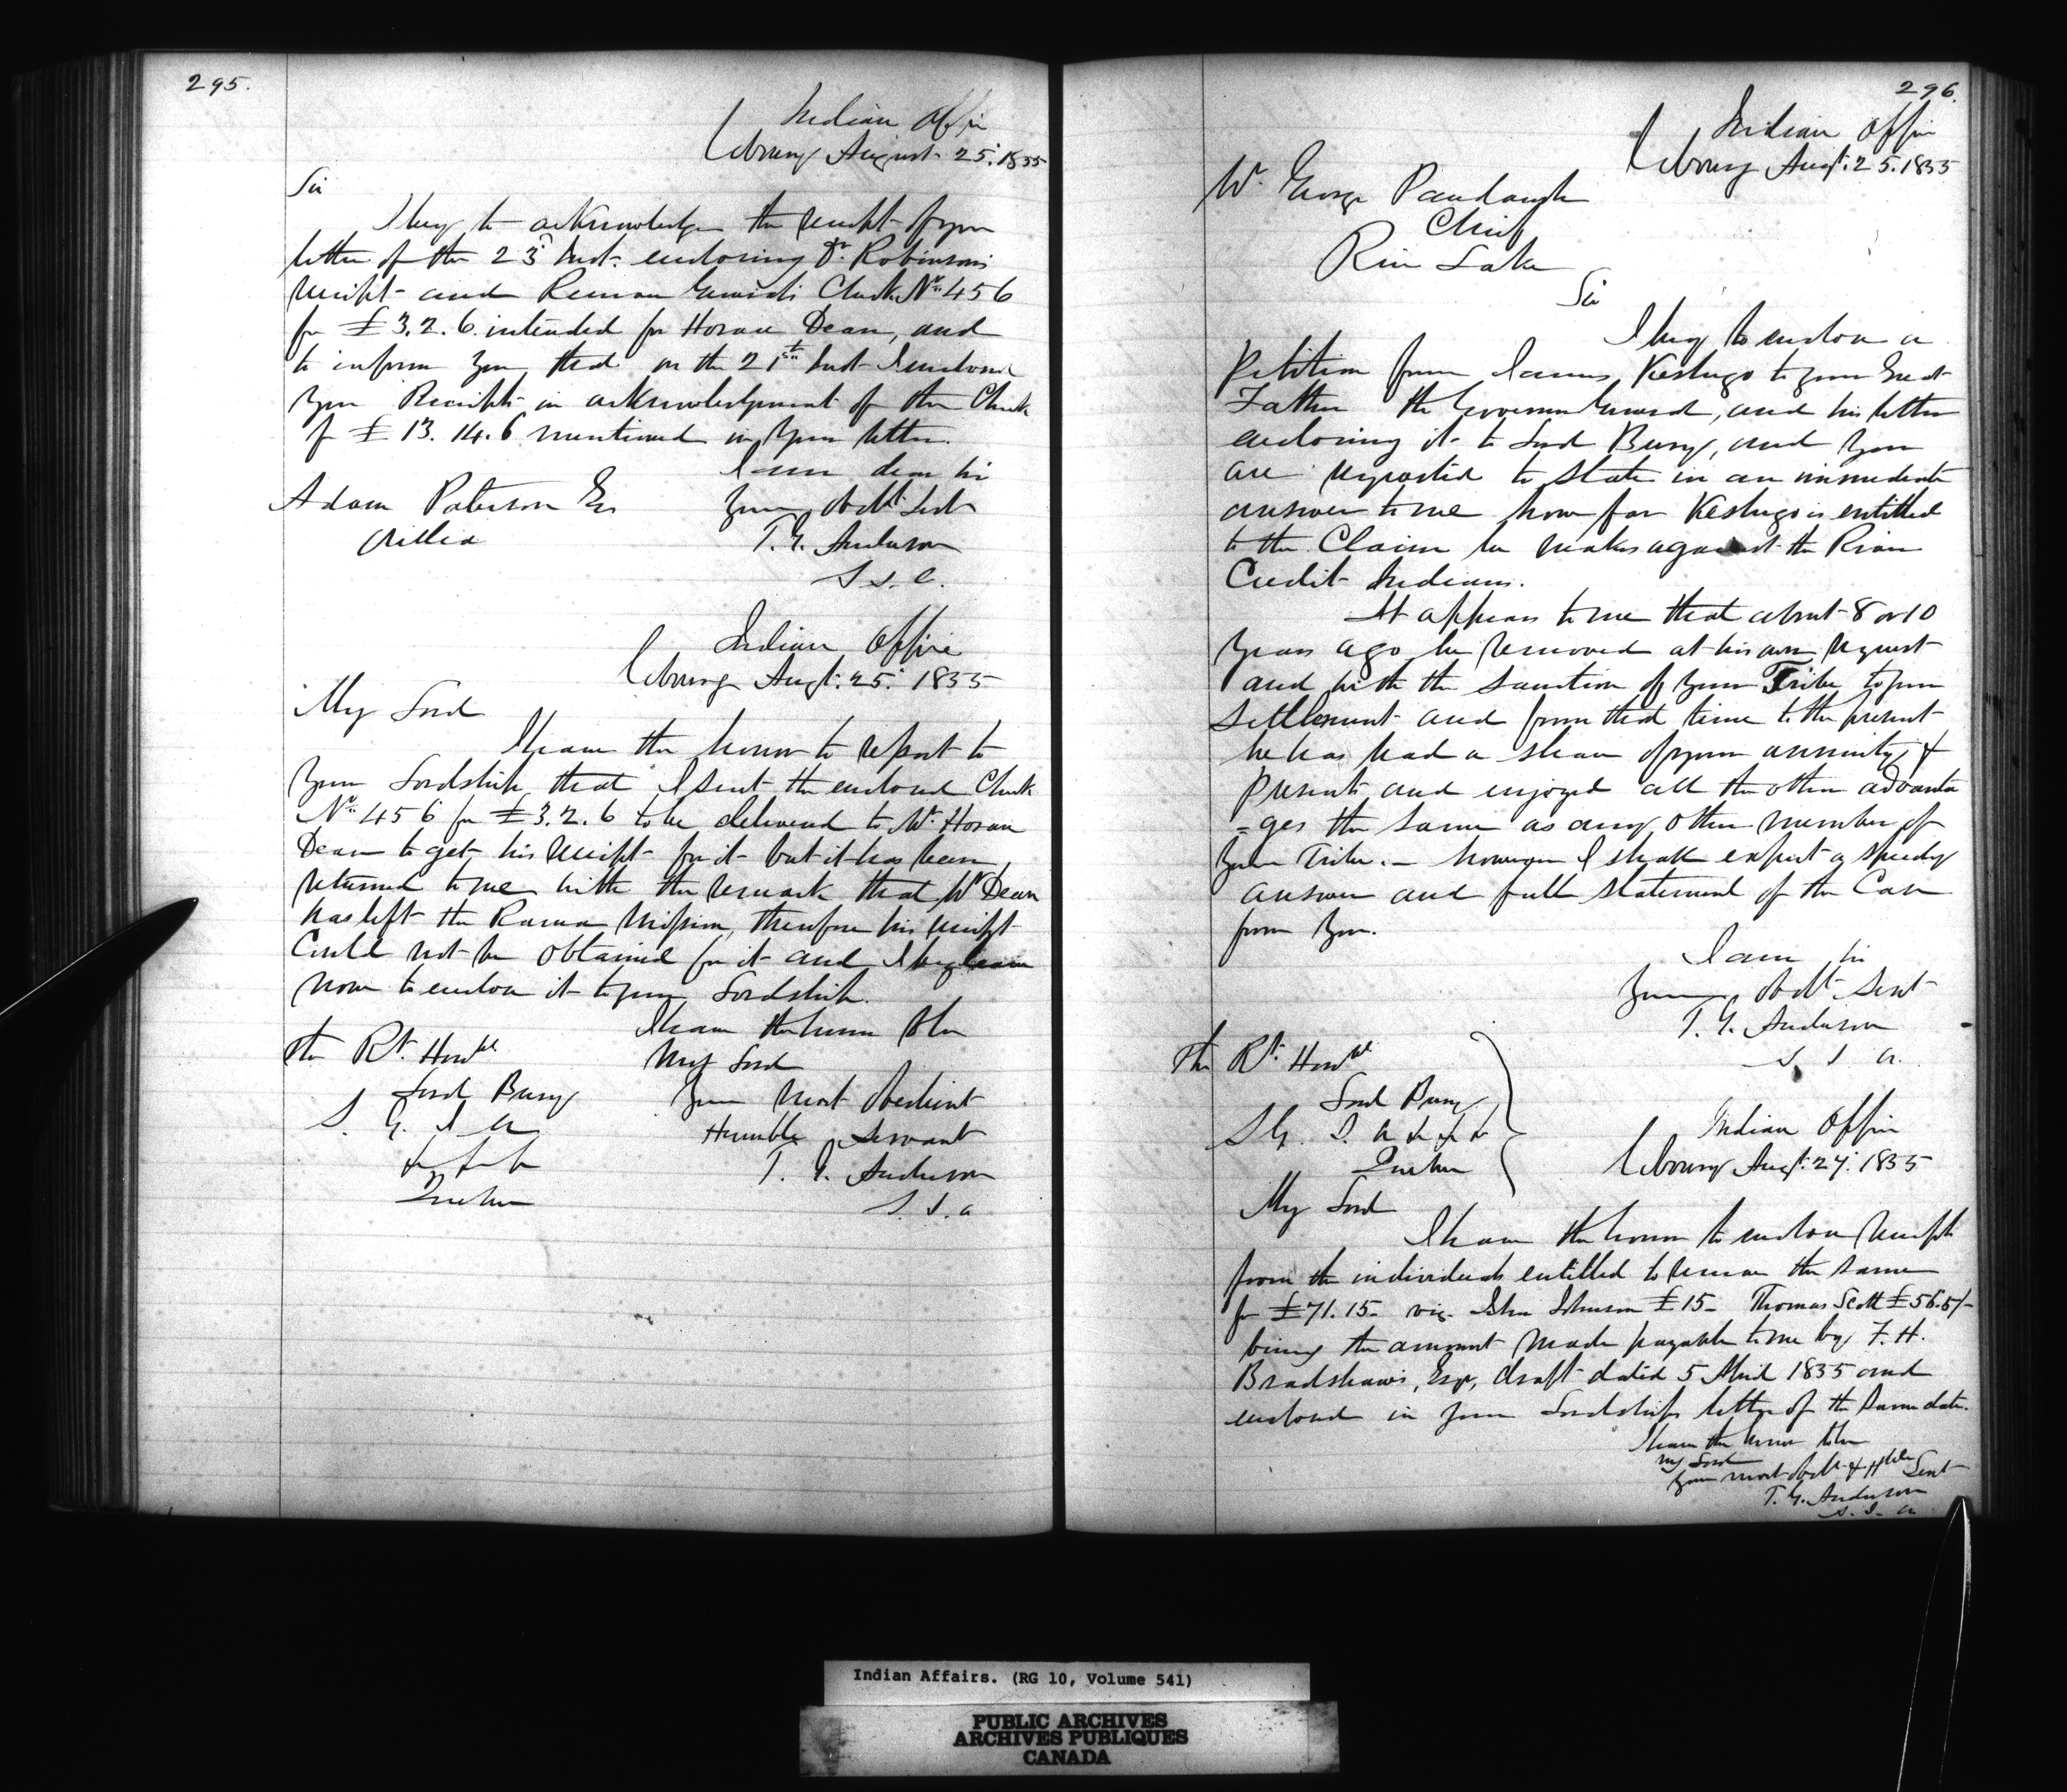 295.
Indian Office
Cobourg August 25. 1855
Sir
I beg to acknowledge the receipt of your
letter of the 23d Inst. enclosing Dr. Robinson's
receipt and Receiver General's Check No. 456
for £3.2.6. intended for Horace Dean, and
to inform you that on the 21st Inst I enclosed
you Receipts in acknowledgment of the Check
of £13.14.6 mentioned in your letter.
I am dear Sir
Your Obdt Servt
T. G. Anderson
S.I.A.
Adam Paterson Esq
Orillia
Indian Office
Cobourg Augt. 25. 1855
My Lord
I have the honor to report to
Your Lordship that I sent the enclosed Check
No. 456 for £3.2.6 to be delivered to Mr. Horace
Dean to get his receipt for it but it has been
returned to me with the remark that Mr Dean
has left the Rama Mission, therefore his receipt
Could not be obtained for it and I beg leave
now to enclose it to your Lordship.
I have the honor to be
My Lord
Your Most Obedient
Humble Servant
T. G. Anderson
S.I.A
The Rt. Honble
Lord Bury
S. G. I A
&c &c &c
Quebec
296.
Indian Office
Cobourg Augt. 25. 1855
Mr. George Paudaugh
Chief
Rice Lake
Sir
I beg to enclose a
Petition from James Keshego to your Great
Father the Governor General, and his letter
enclosing it to Lord Bury, and you
are requested to state in an immediate
answer to me how far Keshego is entitled
to the Claim he makes against the River
Credit Indians.
It appears to me that about 8 or 10
years ago he removed at his own request
and with the sanction of your Tribe to your
Settlement and from that time to the present
he has had a share of your annuity, &
Presents and enjoyed all the other advanta
=ges the same as any other member of
your Tribe. – however I shall expect a speedy
answer and full statement of the Case
from you.
I am Sir
Your Obdt Servt
T. G. Anderson
S I A.
The Rt. Honble
Lord Bury
S G. I. A &c &c
Quebec
Indian Office
Cobourg Augt. 27. 1855
My Lord
I have the honor to enclose receipts
from the individuals entitled to receive the same
for £71.15– viz. John Johnson £15– Thomas Scott £56.5/–
being the amount made payable to me by F. H.
Bradshaw's, Esqr, draft dated 5 April 1855 and
enclosed in your Lordships letter of the same date.
I have the honor to be
my Lord
Your most obdt & Hble Servt
T. G. Anderson
S. I. A
Indian Affairs. (RG 10, Volume 541)
PUBLIC ARCHIVES
ARCHIVES PUBLIQUES
CANADA